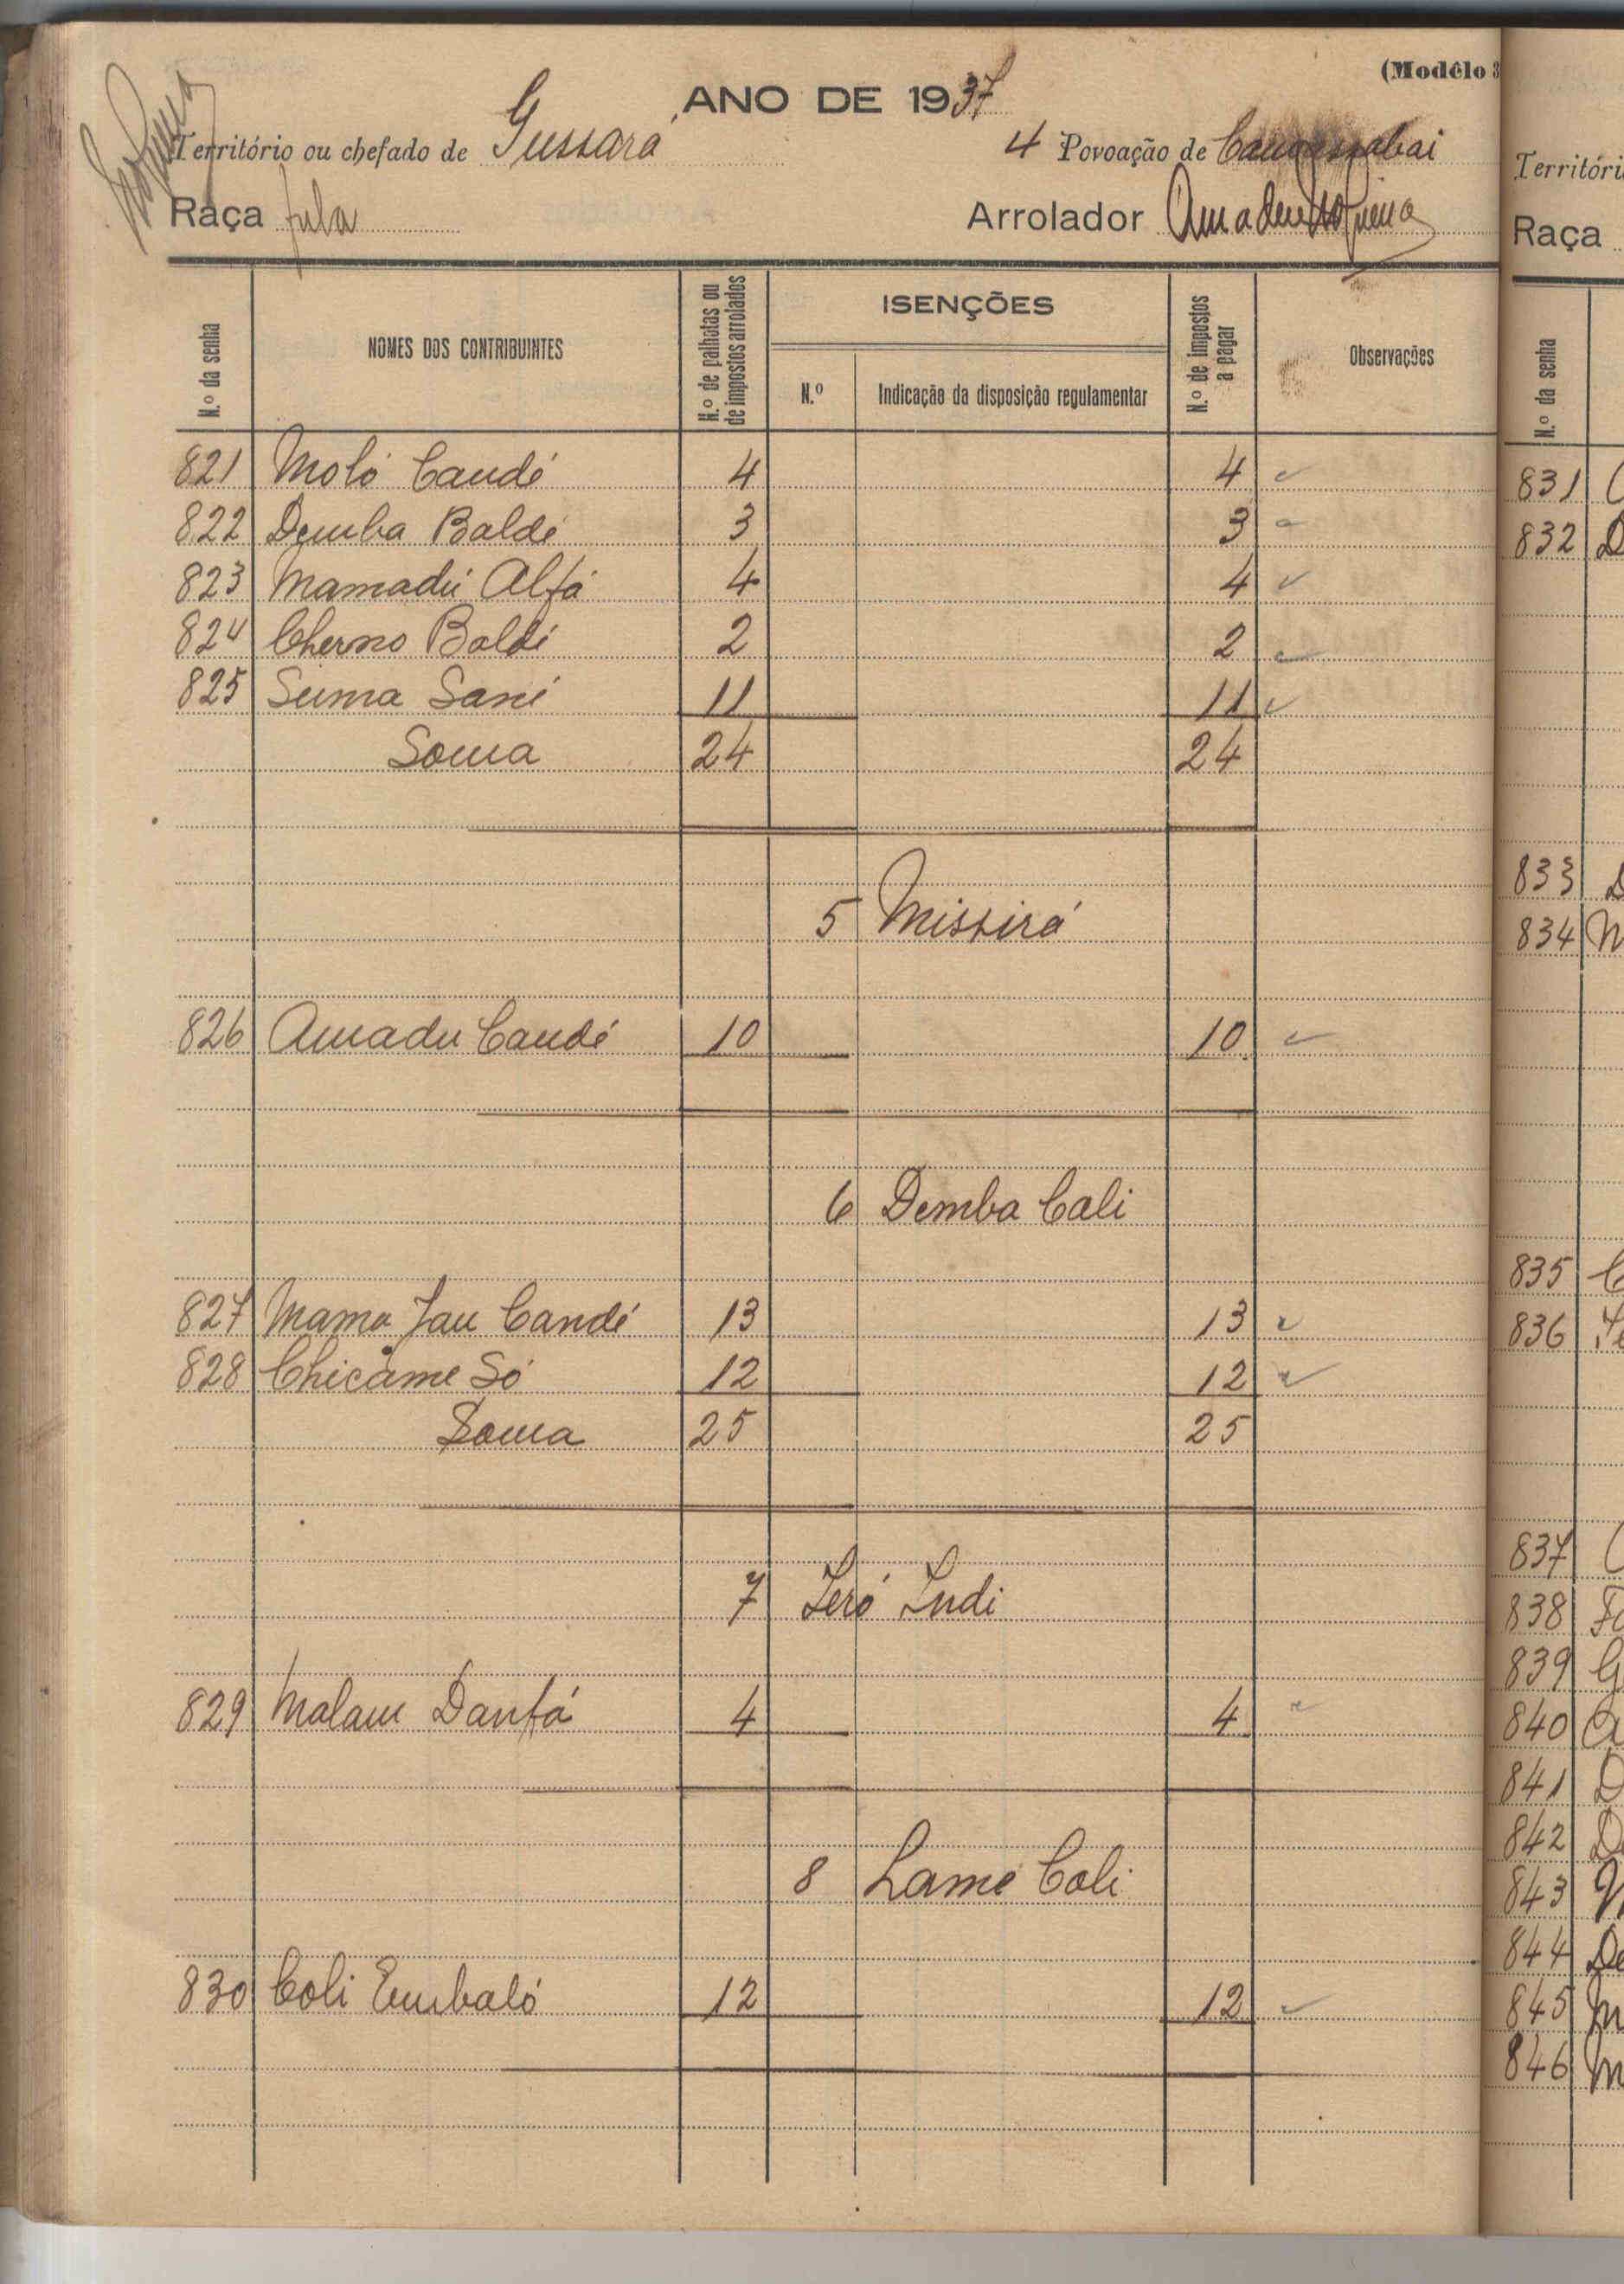 (Modêlo 3
ANO DE 1937
Território ou chefado de Gussará
4 Povoação de
Raça fula
Arrolador
N.º da senha
NOMES DOS CONTRIBUINTES
N.º de palhotas ou de impostos arrolados
ISENÇÕES
N.º
Indicação da disposição regulamentar
N.º de impostos a pagar
Observações
821 Moló Candé 4 4
822 Demba Baldé 3 3
823 Mamadú Alfá 4 4
824 Cherno Baldé 2 2
825 Suma Sané 11 11
Soma 24 24
5 Missirá
826 Amadu Candé 10 10
6 Demba Cali
827 Mama Jau Candé 13 13
828 Chicame Só 12 12
Soma 25 25
7
829 Malam Danfá 4 4
8 Lamé Coli
830 Coli Embaló 12 12
Territóri
Raça
N.º da senha
831
832
833
834
835
836
837
838
839
840
841
842
843
844
845
846